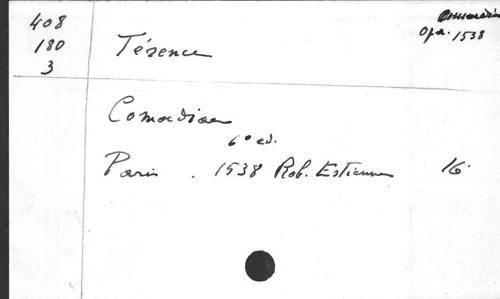 408
180
3
Térence
Comoediae
Op. 1538
Comoediae
6º ed.
Paris . 1538 Rob. Estienne 16º